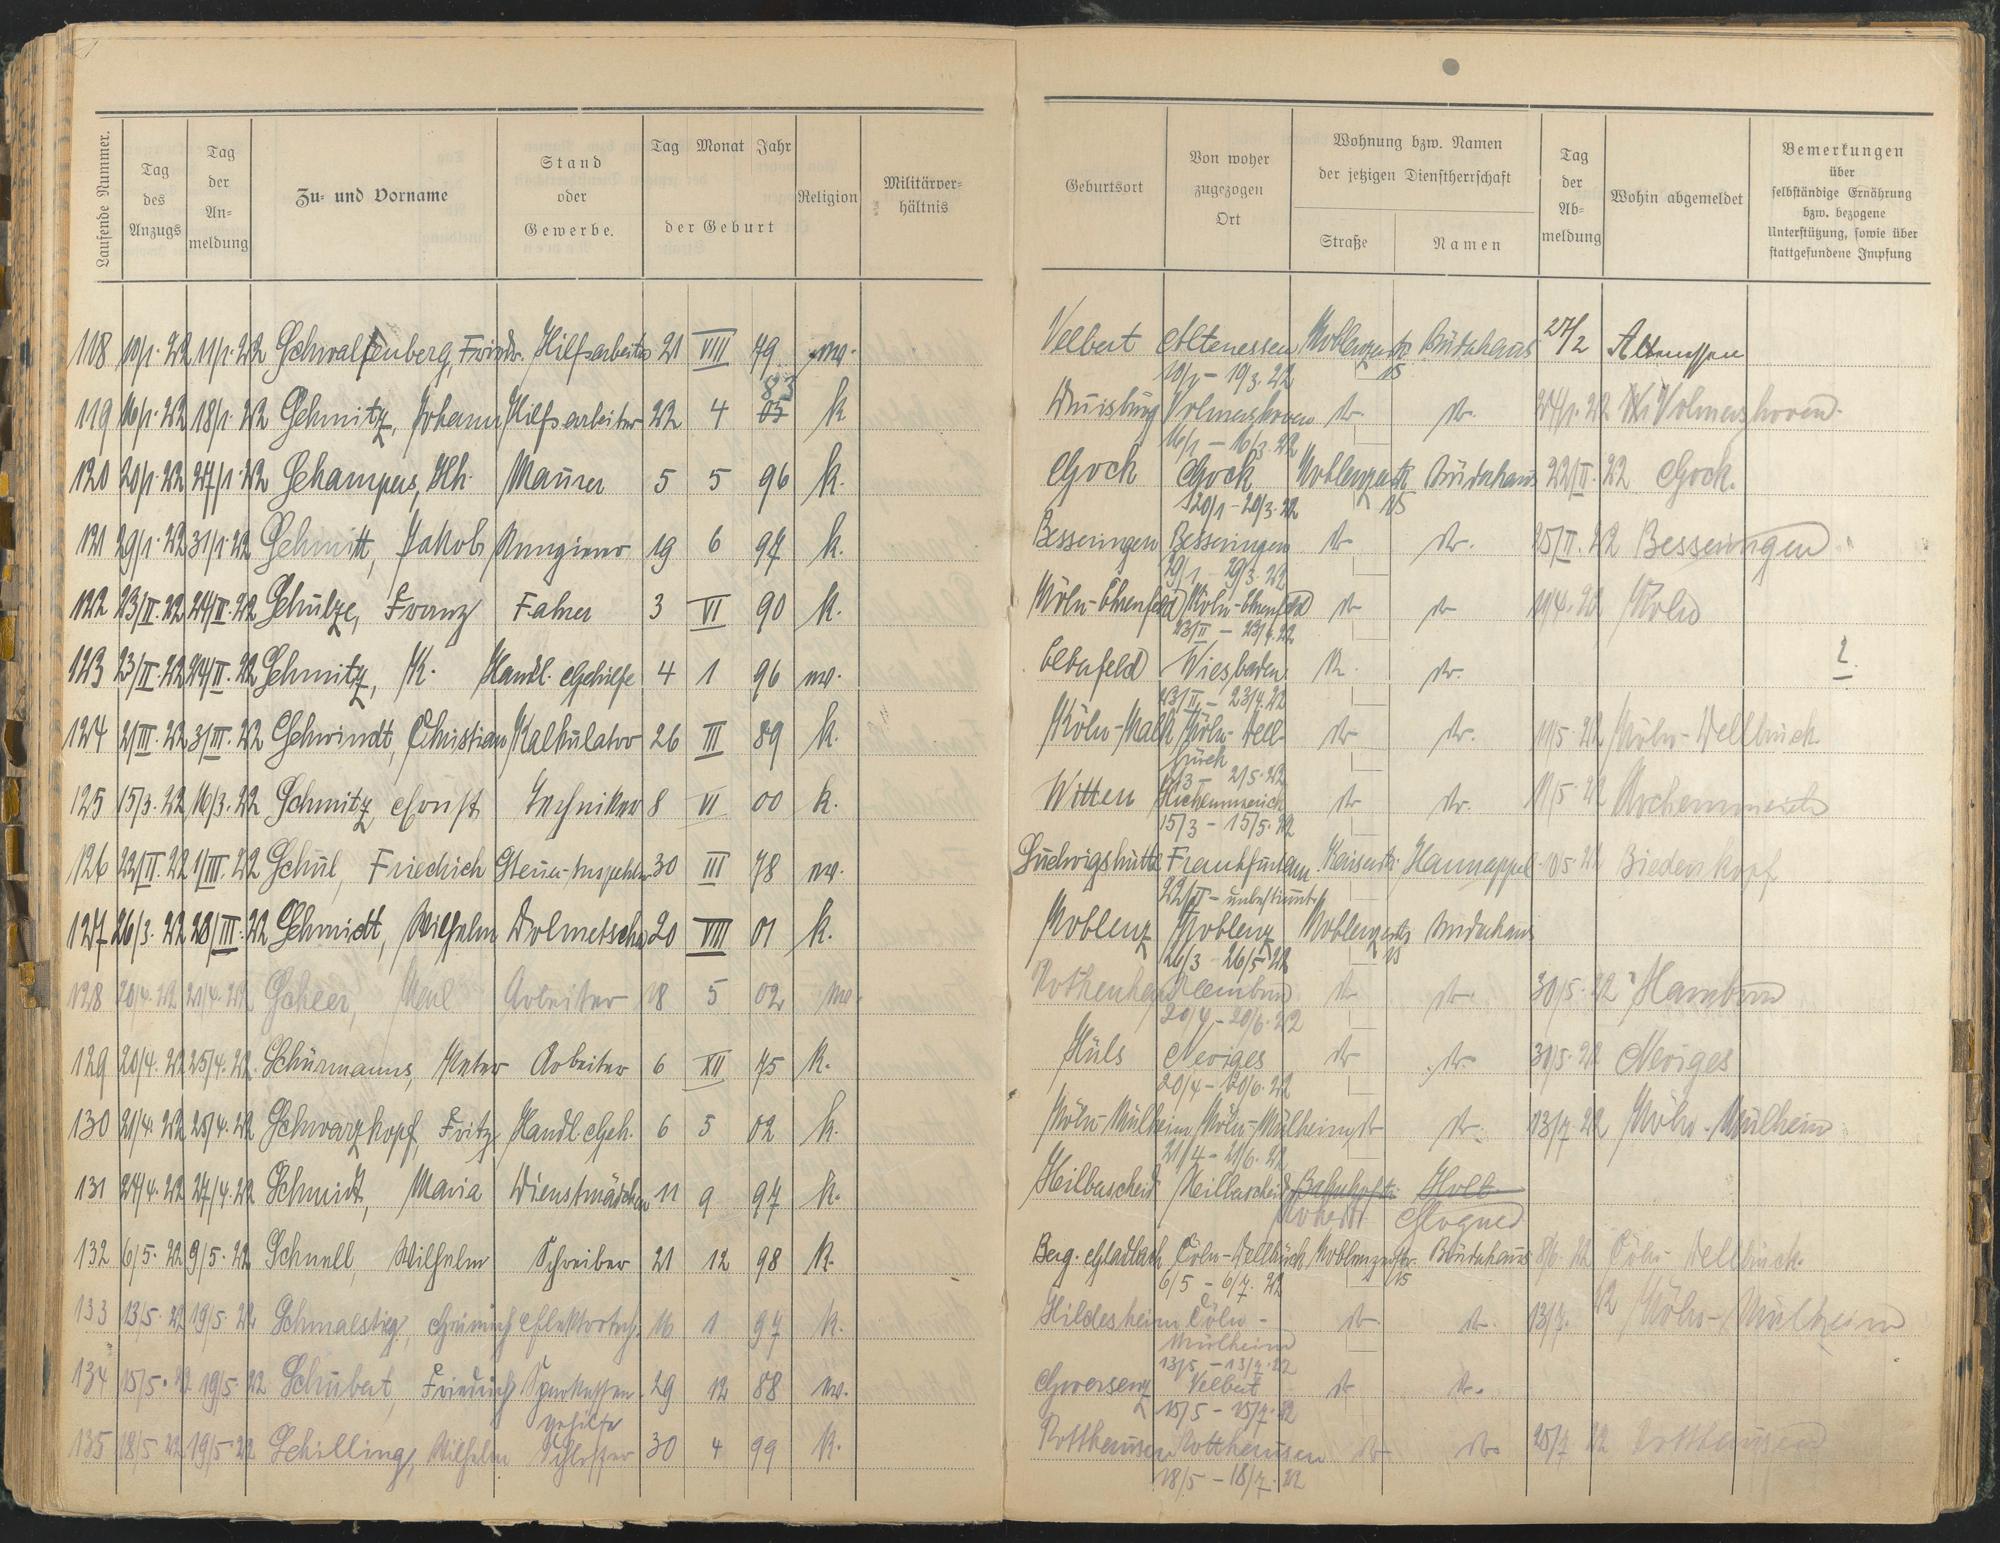 Laufende Nummer.
Tag des Anzugs
Tag der An- meldung
Zu- und Vorname
Stand oder Gewerbe.
Tag Monat Jahr
der Geburt
Religion
Militärver- hältnis
Geburtsort
Von woher zugezogen Ort
Wohnung bzw. Namen der jetzigen Dienstherrschaft
Straße
Namen
Tag der Ab- meldung
Wohin abgemeldet
Bemerkungen über selbständige Ernährung bzw. bezogene Unterstützung, sowie über stattgefundene Impfung
118 10/1. 22 11/1. 22 Schwalfenberg, Friedr. Hilfsarbeiter 21 VIII 79 ev. Velbert Altenessen Koblenzerstr 15 Brüderhaus 27/2 Altenessen
10/1 – 10/3. 22
83
119 16/1. 22 18/1. 22 Schmitz, Johann Hilfsarbeiter 22 4 05 k Duisburg Volmershoven dto dto. 24/1. 22 Volmershoven
16/1 – 16/3. 22
120 20/1. 22 27/1. 22 Schampus, Hh. Maurer 5 5 96 k. Goch Goch Koblenzerstr 15 Brüderhaus 22/II. 22 Goch.
20/1 – 20/3. 22
121 29/1. 22 31/1. 22 Schmitt, Jakob 19 6 97 k. Besseringen Besseringen dto dto. 25/II. 22 Besseringen
29/1 – 29/3. 22
122 23/II. 22 24/II. 22 Schulze, Franz Fahrer 3 VI 90 k. Köln-Ehrenfeld Köln-Ehrenfeld dto dto 11/4. 22 Köln
23/II – 23/4. 22
123 23/II. 22 24/II. 22 Schmitz, K. Handl. Gehilfe 4 1 96 ev. Elberfeld Wiesbaden dto. dto. 2.
23/II – 23/4. 22
124 2/III. 22 3/III. 22 Schwindt, Christian Kalkulator 26 III 89 k. Köln-Kalk Köln-Dell- dto dto. 11/5. 22 Köln-Dellbrück
brück
2/3 – 2/5. 22
125 15/3. 22 16/3. 22 Schmitz, Ernst Techniker 8 VI 00 k. Witten dto dto. 11/5. 22
15/3 – 15/5. 22
126 22/II. 22 1/III. 22 Schul, Friedrich Steuer-Inspektor 30 III 78 ev. Ludwigshütte Frankfurt a.M. Kaiserstr. Hannappel 10/5. 22 Biedenkopf
22/II – unbestimmt
127 26/3. 22 28/III. 22 Schmidt, Wilhelm Dolmetscher 20 VIII 01 k. Koblenz Koblenz Koblenzerstr 15 Brüderhaus
26/3 – 26/5 22
128 20/4. 22 21/4. 22 Scheer, Karl Arbeiter 18 5 02 ev. Hamborn dto dto. 30/5. 22 Hamborn
20/4 – 20/6. 22
129 20/4. 22 25/4. 22 Schürmanns, Peter Arbeiter 6 XII 75 k. Hüls Neviges dto dto. 30/5. 22 Neviges
20/4 – 20/6. 22
130 21/4. 22 25/4. 22 Schwarzkopf, Fritz Handl. Geh. 6 5 02 k. Köln-Mülheim Köln-Mülheim dto dto. 13/7. 22 Köln-Mülheim
21/4 – 21/6. 22
131 24/4. 22 27/4. 22 Schmidt, Maria Dienstmädchen 11 9 97 k. Heilberscheid Heilberscheid Bahnhofstr. Holb
132 6/5. 22 9/5. 22 Schnell, Wilhelm Schreiber 21 12 98 k. Berg. Gladbach Cöln-Dellbrück Koblenzerstr. 15 Brüderhaus 8/6. 22 Cöln Dellbrück.
6/5 – 6/7. 22
133 13/5. 22 19/5. 22 Schmalstieg, Heinrich Elektrotech. 16 1 97 k. Hildesheim Cöln- dto. dto. 13/7. 22 Köln-Mülheim
Mülheim
13/5. – 13/7. 22
134 15/5. 22 19/5. 22 Schubert, Friedrich Sparkassen- 29 12 88 ev. Velbert dto dto.
gehilfe
15/5 – 15/7. 22
135 18/5. 22 19/5. 22 Schilling, Wilhelm Schlosser 30 4 99 k. Rotthausen Rotthausen dto dto 25/7 22 Rotthausen
18/5 – 18/7. 22